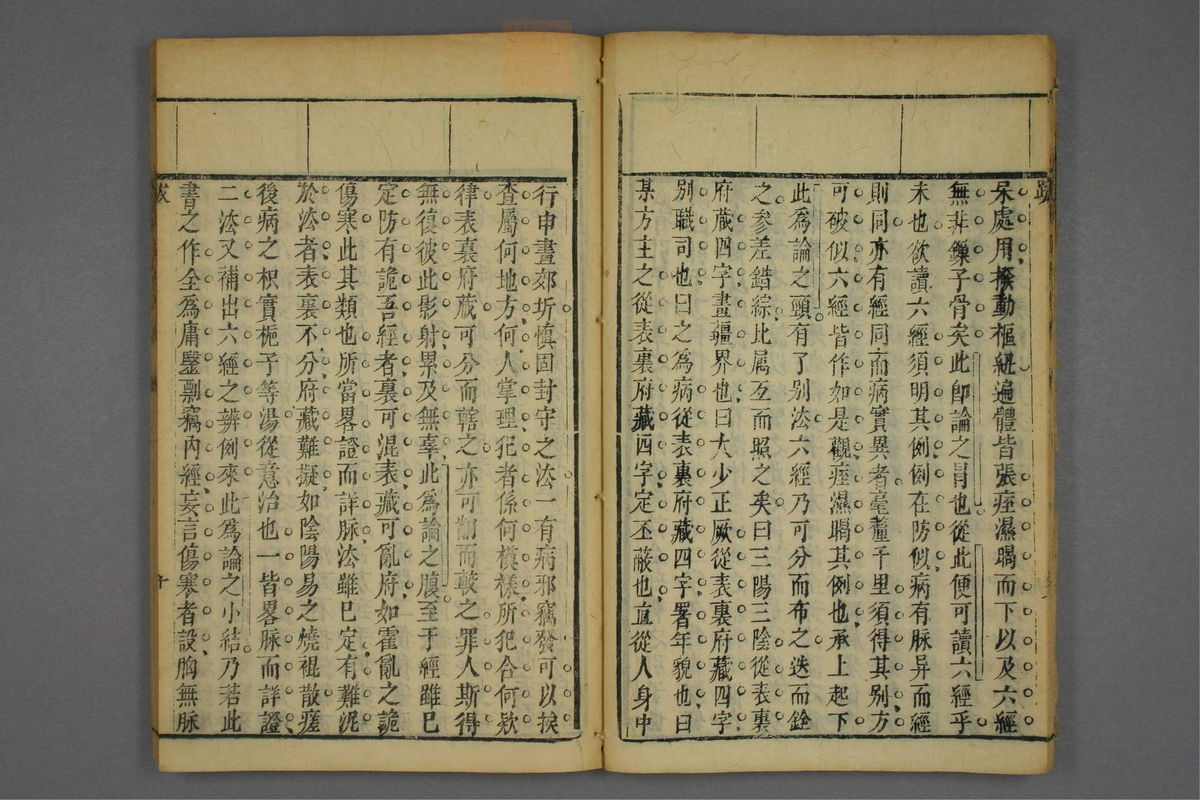 跋
杀處用撥動樞紐遍體皆張痙濕暍而下以及六經
無非鑠子骨矣此卽論之胃也從此便可讀六經乎
未也欲讀六經須明其例例在防似病有脉异而經
則同亦有經同而病實異者毫釐千里須得其别方
可破似六經皆作如是觀痙濕暍其例也承上起下
此爲論之頸有了别法六經乃可分而布之迭而銓
之參差錯綜比属互而照之矣曰三陽三陰從表裏
府藏四字畫疆界也曰大少正厥從表裏府藏四字
别職司也曰之爲病從表裏府藏四字署年貌也曰
某方主之從表裏府藏四字定丕蔽也直從人身中
行申畫郊圻慎固封守之法一有病邪竊發可以挨
查屬何地方何人掌理犯者係何模樣所犯合何欵
律表裏府藏可分而轄之亦可劄而敼之罪人斯得
無復彼此影射累及無辜此爲論之腹至于經雖已
定防有詭吾經者裏可混表藏可亂府如霍亂之詭
傷寒此其類也所當畧證而詳脉法雖已定有難泥
於法者表裏不分府藏難擬如陰陽易之燒裩散瘥
後病之枳實梔子等湯從意治也一皆畧脉而詳證
二法又補出六經之辨例來此爲論之小結乃若此
書之作全爲庸毉剽竊内經妄言傷寒者設胸無脉
跋
十